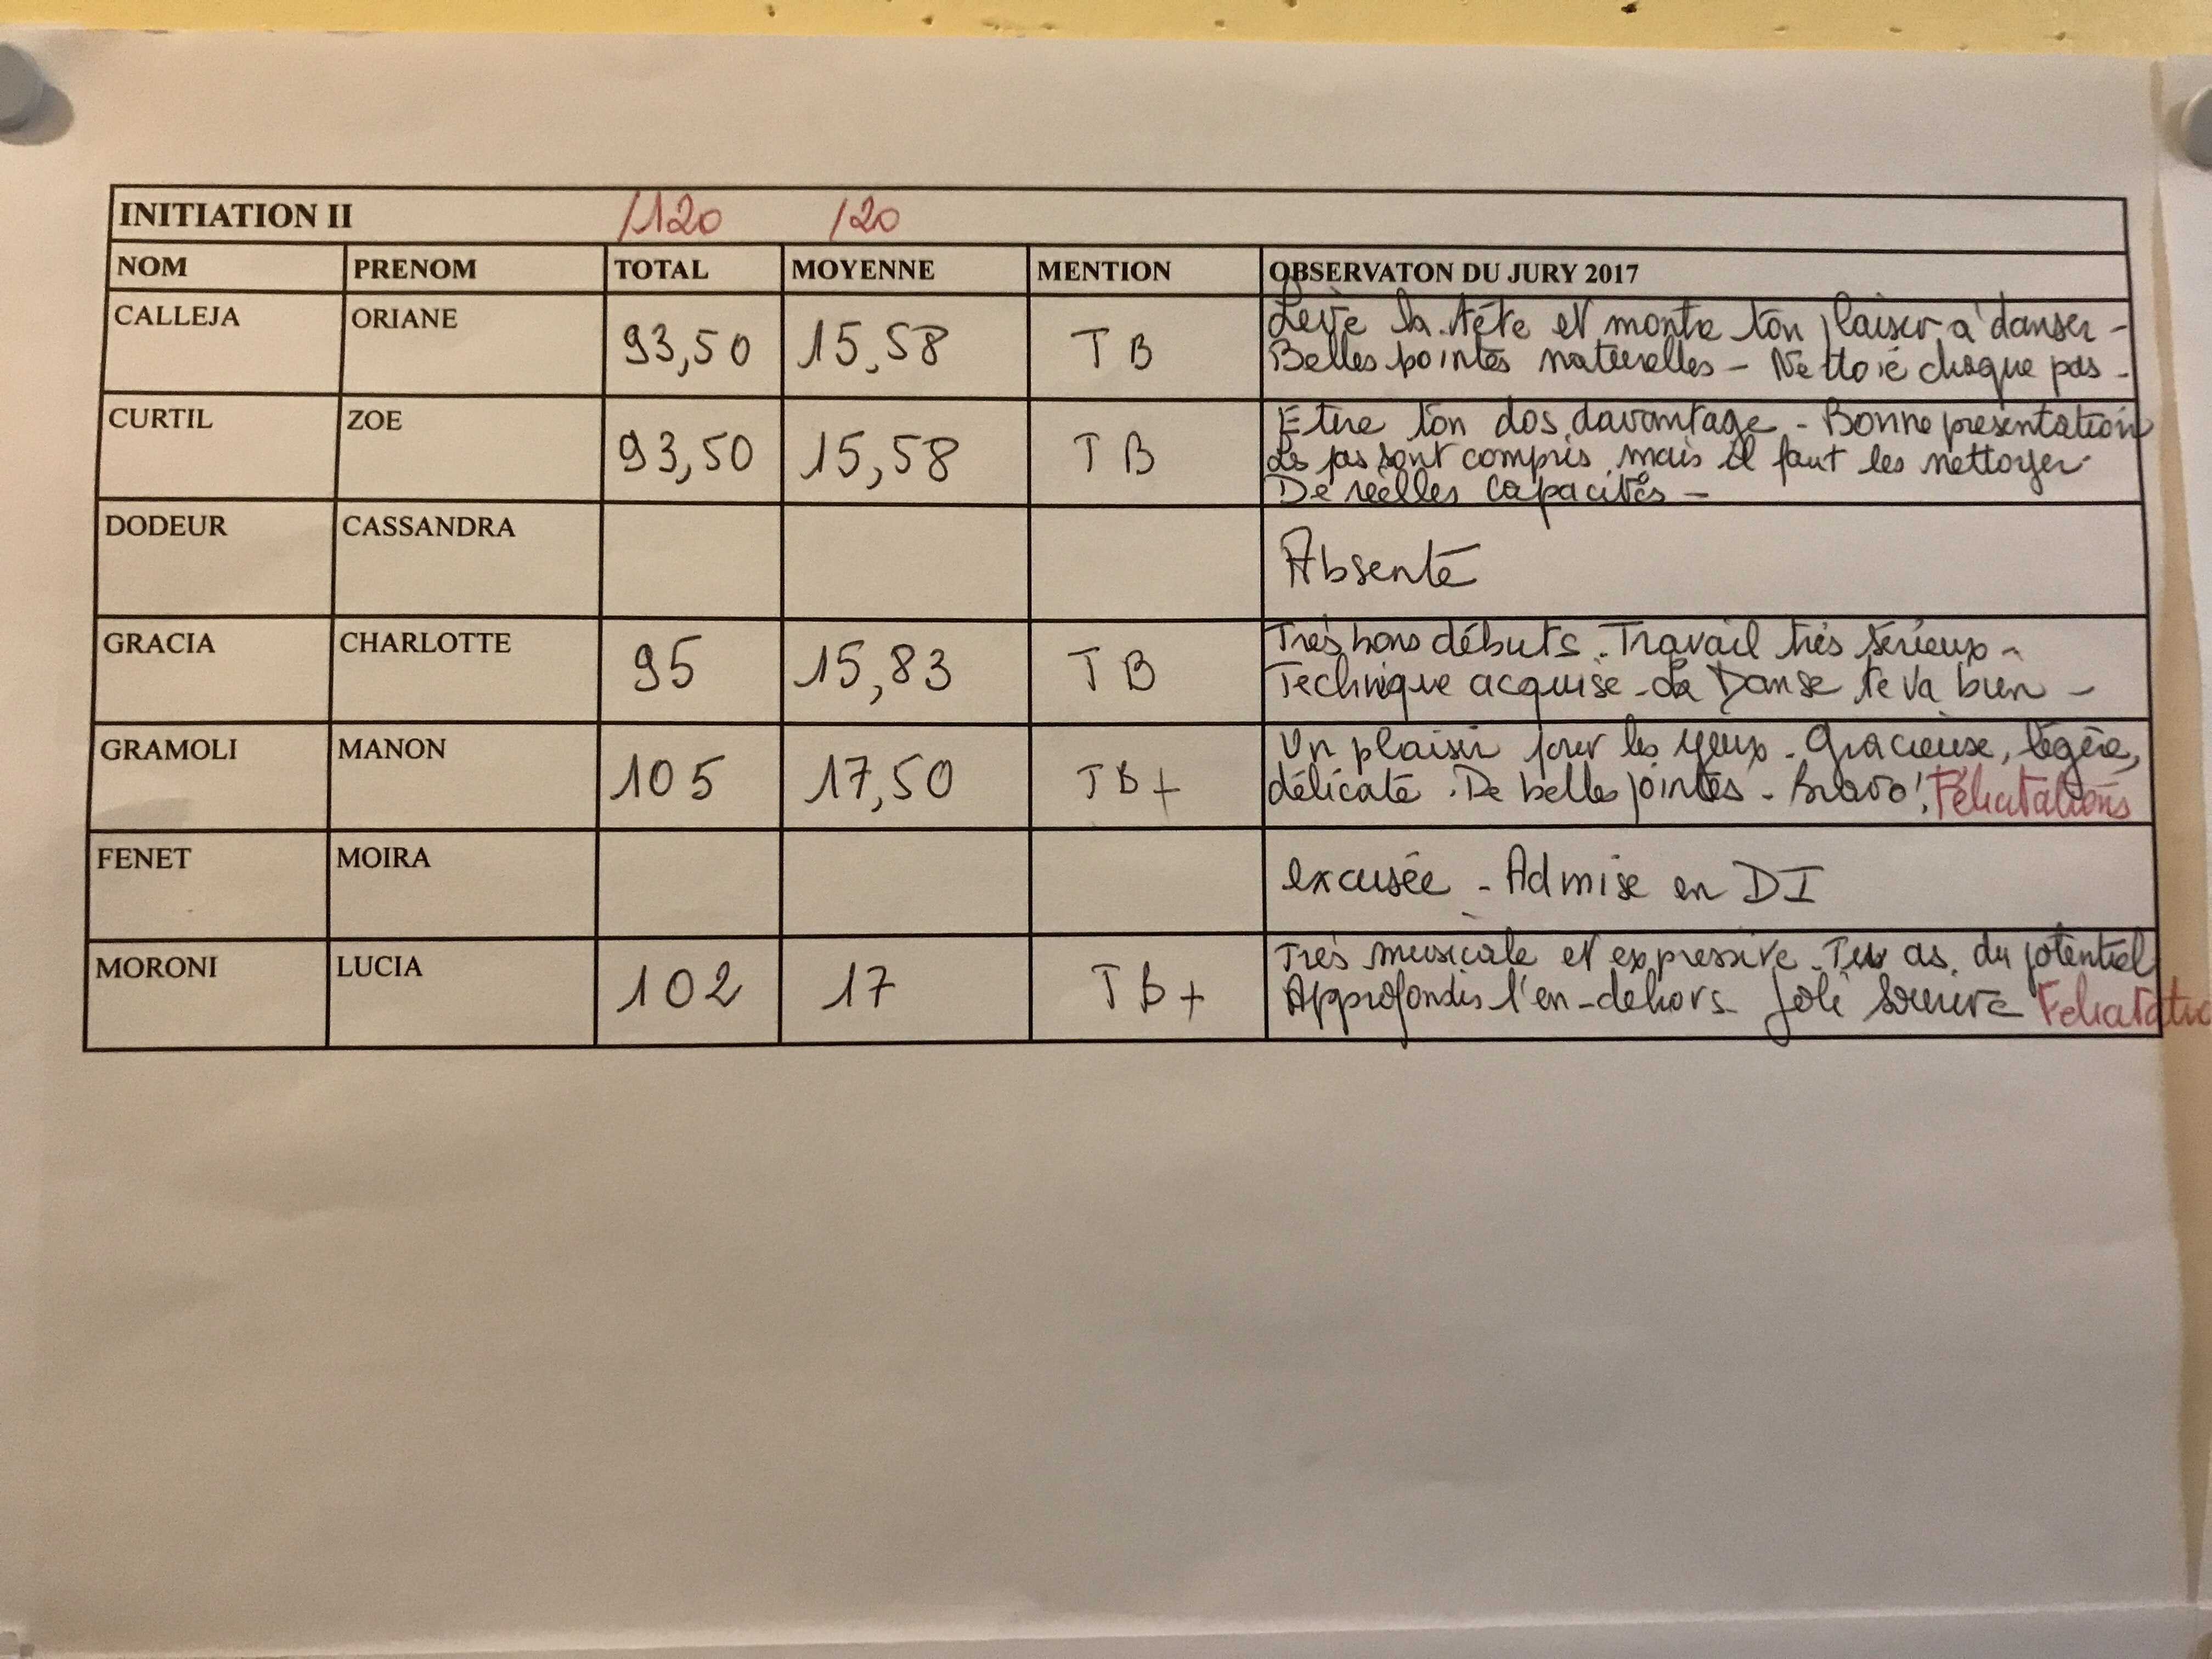 INITIATION II /120 /20
NOM PRENOM TOTAL MOYENNE MENTION OBSERVATON DU JURY 2017
CALLEJA ORIANE 93,50 15,58 TB
Lève la tête et montre ton plaisir à danser -
Belles pointes naturelles - Nettoie chaque pas -
CURTIL ZOE 93,50 15,58 TB
Etire ton dos davantage - Bonne présentation
Les pas sont compris mais il faut les nettoyer
De réelles capacités -
DODEUR CASSANDRA
Absente
GRACIA CHARLOTTE 95 15,83 TB
Très bons débuts - Travail très sérieux -
Technique acquise - La Danse te va bien -
GRAMOLI MANON 105 17,50 TB+
Un plaisir pour les yeux - Gracieuse, légère,
délicate . De belles pointes - Bravo ! Félicitations
FENET MOIRA
excusée - Admise en DI
MORONI LUCIA 102 17 TB+
Très musicale et expressive - Tu as du potentiel
Approfondis l'en-dehors - Joli sourire Félicitatio